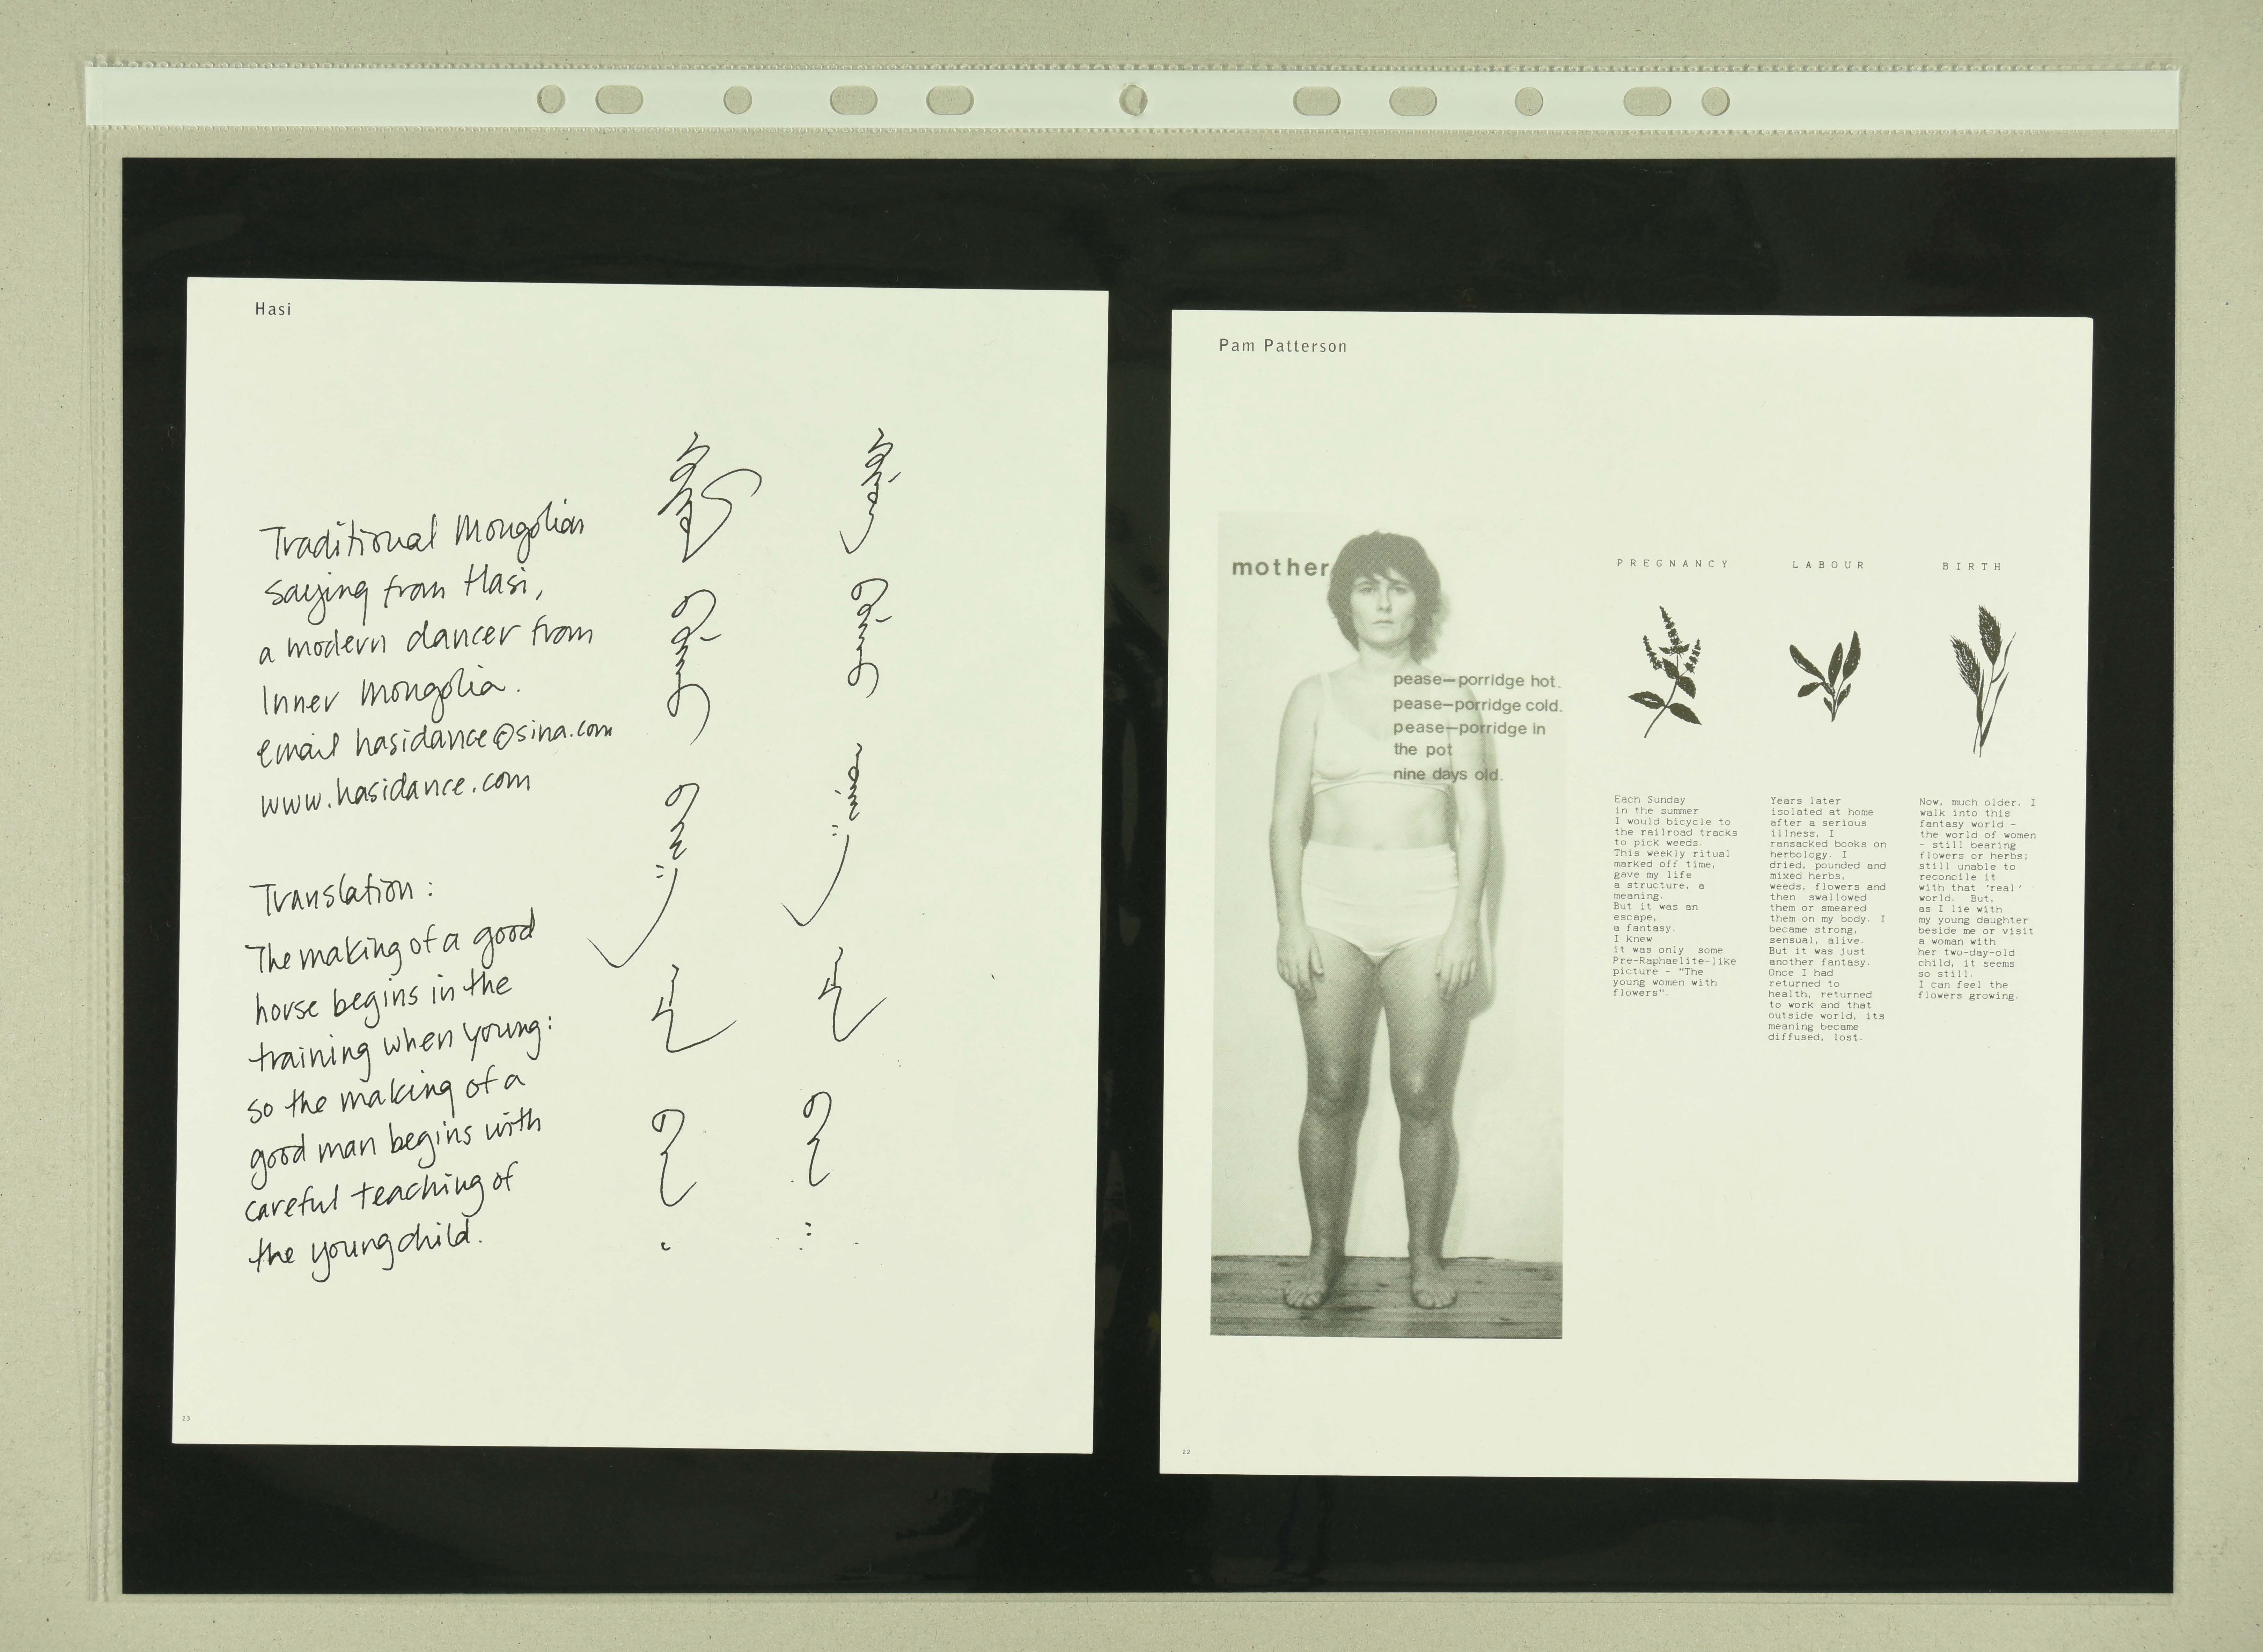 Hasi
Traditional Mongolian
saying from Hasi,
a modern dancer from
Inner Mongolia.
email hasidance@sina.com
www.hasidance.com
Translation:
The making of a good
horse begins in the
training when young:
so the making of a
good man begins with
careful teaching of
the young child.
23
Pam Patterson
mother
pease—porridge hot.
pease—porridge cold.
pease—porridge in
the pot
nine days old.
PREGNANCY
Each Sunday
in the summer
I would bicycle to
the railroad tracks
to pick weeds.
This weekly ritual
marked off time,
gave my life
a structure, a
meaning.
But it was an
escape,
a fantasy.
I knew
it was only some
Pre-Raphaelite-like
picture - "The
young women with
flowers".
LABOUR
Years later
isolated at home
after a serious
illness, I
ransacked books on
herbology. I
dried, pounded and
mixed herbs,
weeds, flowers and
then swallowed
them or smeared
them on my body. I
became strong,
sensual, alive.
But it was just
another fantasy.
Once I had
returned to
health, returned
to work and that
outside world, its
meaning became
diffused, lost.
BIRTH
Now, much older, I
walk into this
fantasy world -
the world of women
- still bearing
flowers or herbs;
still unable to
reconcile it
with that 'real'
world. But,
as I lie with
my young daughter
beside me or visit
a woman with
her two-day-old
child, it seems
so still.
I can feel the
flowers growing.
22